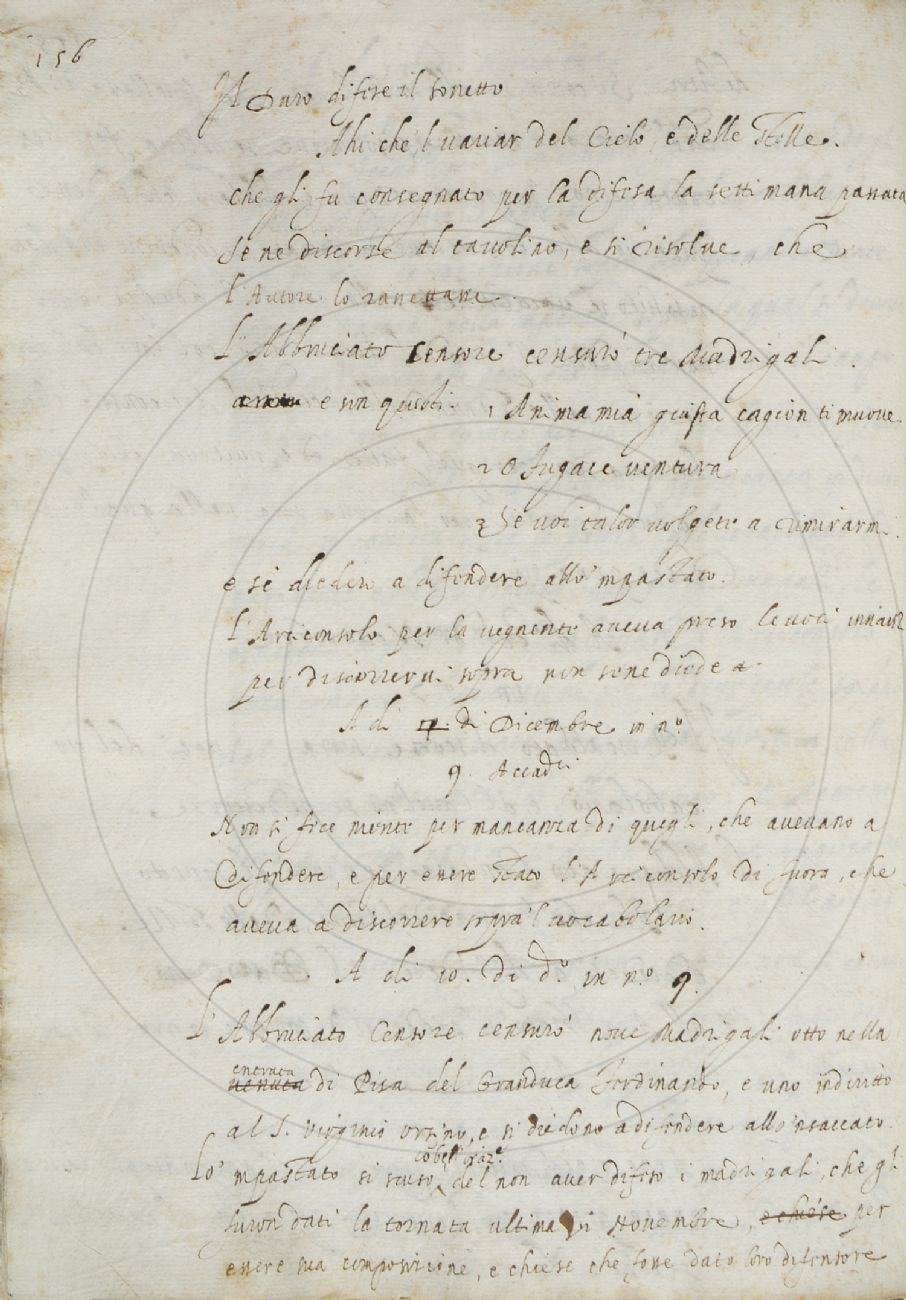 156
Il Duro difese il sonetto
Ahi che 'l variar del Cielo, e delle stelle.
che gli fu consegnato per la difesa la settimana passata
se ne discorse al tavolino, e si risolve, che
l'Autore lo rassettasse.
L'Abbruciato Censore censurò tre Madrigali
e son questi. 1 Anima mia giusta cagion ti muove
2 O fugace ventura
3 Se voi talor volgete a rimirarmi.
e si diedero a difendere allo 'mpastato.
l'Arciconsolo per la vegnente aveva preso le voci
per discorrervi sopra non se ne diede
A di 4. di Dicembre in n.o
9. Accad.ci
Non si fece niente per mancanza di quegli, che avevano a
difendere, e per essere stato l'Arciconsolo di fuora, che
aveva a discorrere sopra 'l vocabolario.
A di 10. di d.o in n.o 9.
L'Abbruciato Censore censurò nove Madrigali otto nella
entrata
venuta di Pisa del Granduca Ferdinando, e uno indiritto
al S. Virginio Orsino, e si diedono a difendere allo 'nsaccato.
Lo 'mpastato si scusò del non aver difeso i madrigali, che gli
furon dati la tornata ultima di Novembre, e chiese per
essere sua composizione, e chiese che fosse dato loro difensore